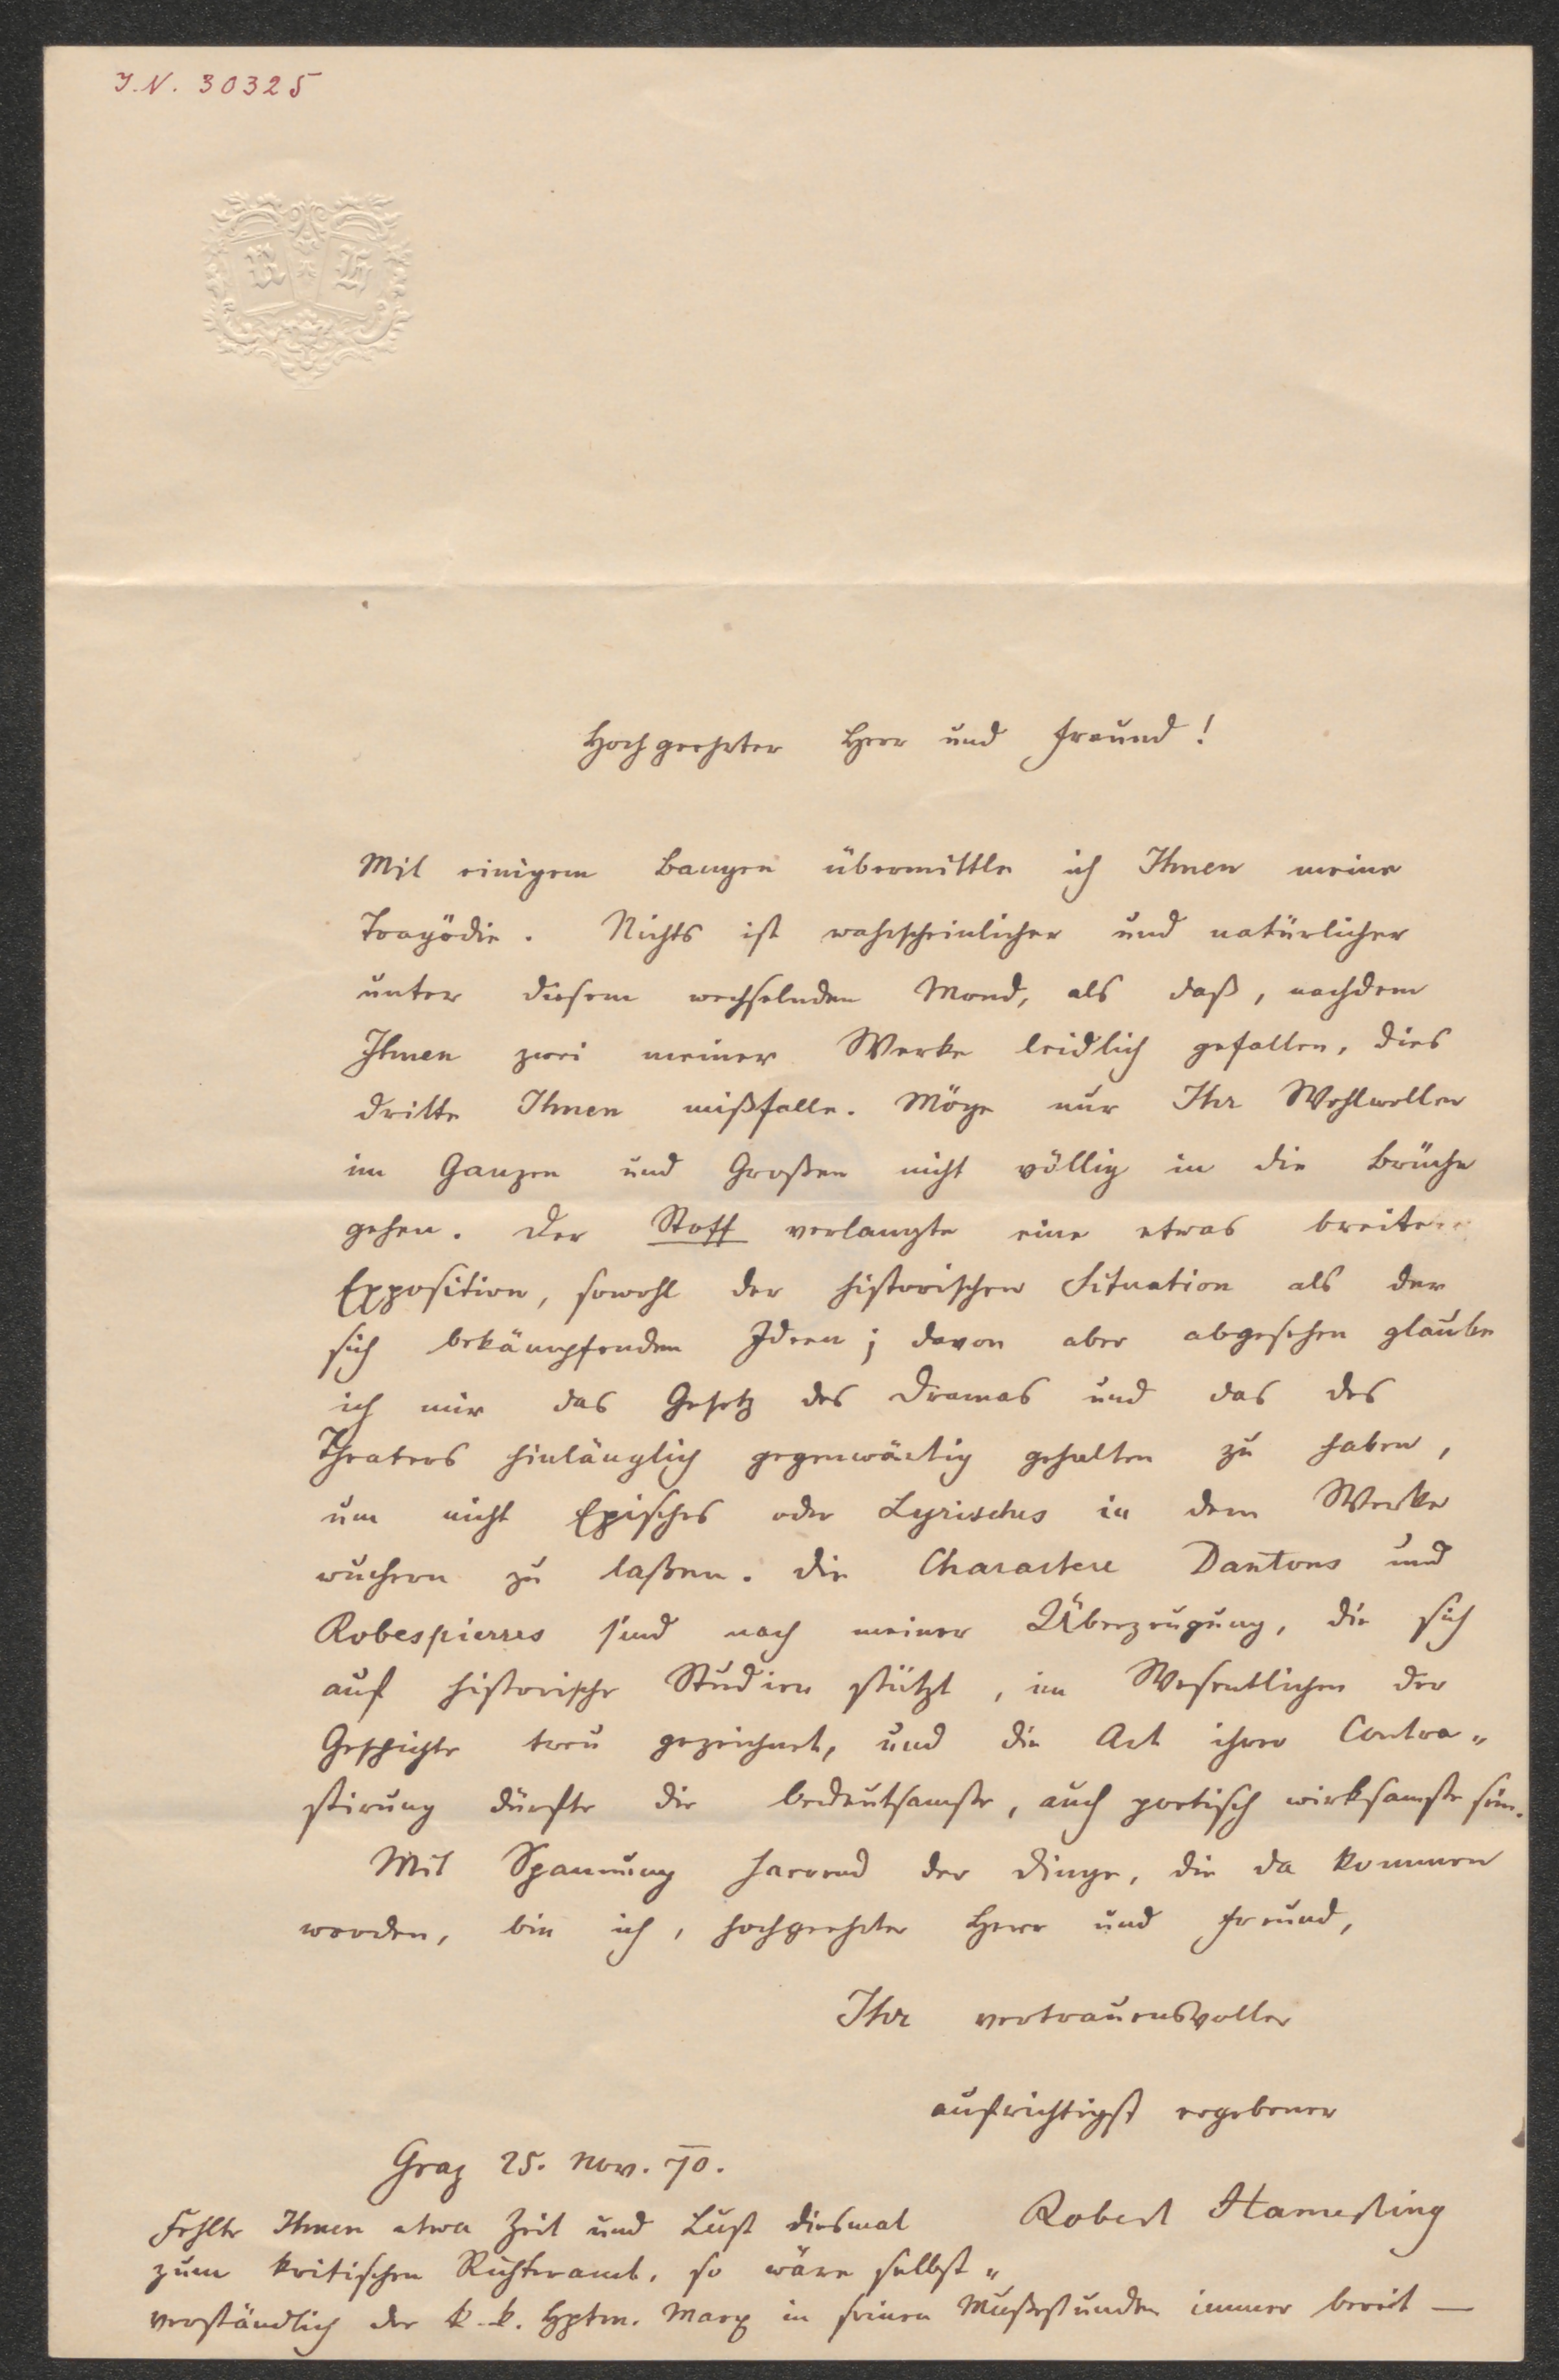 I.N. 30325
R H
Hochgeehrter Herr und Freund!
Mit einigem Bangen übermittle ich Ihnen meine
Tragödie. Nichts ist wahrscheinlicher und natürlicher
unter diesem wechselnden Mond, als daß, nachdem
Ihnen zwei meiner Werke leidlich gefallen, dies
dritte Ihnen mißfalle. Möge nur Ihr Wohlwollen
im Ganzen und Großen nicht völlig in die Brüche
gehen. Der Stoff verlangte eine etwas breitere
Exposition, sowohl der historischen Situation als der
sich bekämpfenden Ideen; davon aber abgesehen glaube
ich mir das Gesetz des Dramas und das des
Theaters hinlänglich gegenwärtig gehalten zu haben,
um nicht Episches oder Lyrisches in dem Werke
wuchern zu laßen. Die Charactere Dantons und
Robespierres sind nach meiner Überzeugung, die sich
auf historische Studien stützt, im Wesentlichen der
Geschichte treu gezeichnet, und die Art ihrer Contra„
stirung dürfte die bedeutsamste, auch poetisch wirksamste sein.
Mit Spannung harrend der Dinge, die da kommen
werden, bin ich, hochgeehrter Herr und Freund,
Ihr vertrauensvoller
aufrichtigst ergebener
Graz 25. Nov. 70.
Robert Hamerling
Fehlte Ihnen etwa Zeit und Lust diesmal
zum kritischen Richteramt, so wäre selbst„
verständlich der k. k. Hptm. Marx in seinen Mußestunden immer bereit —